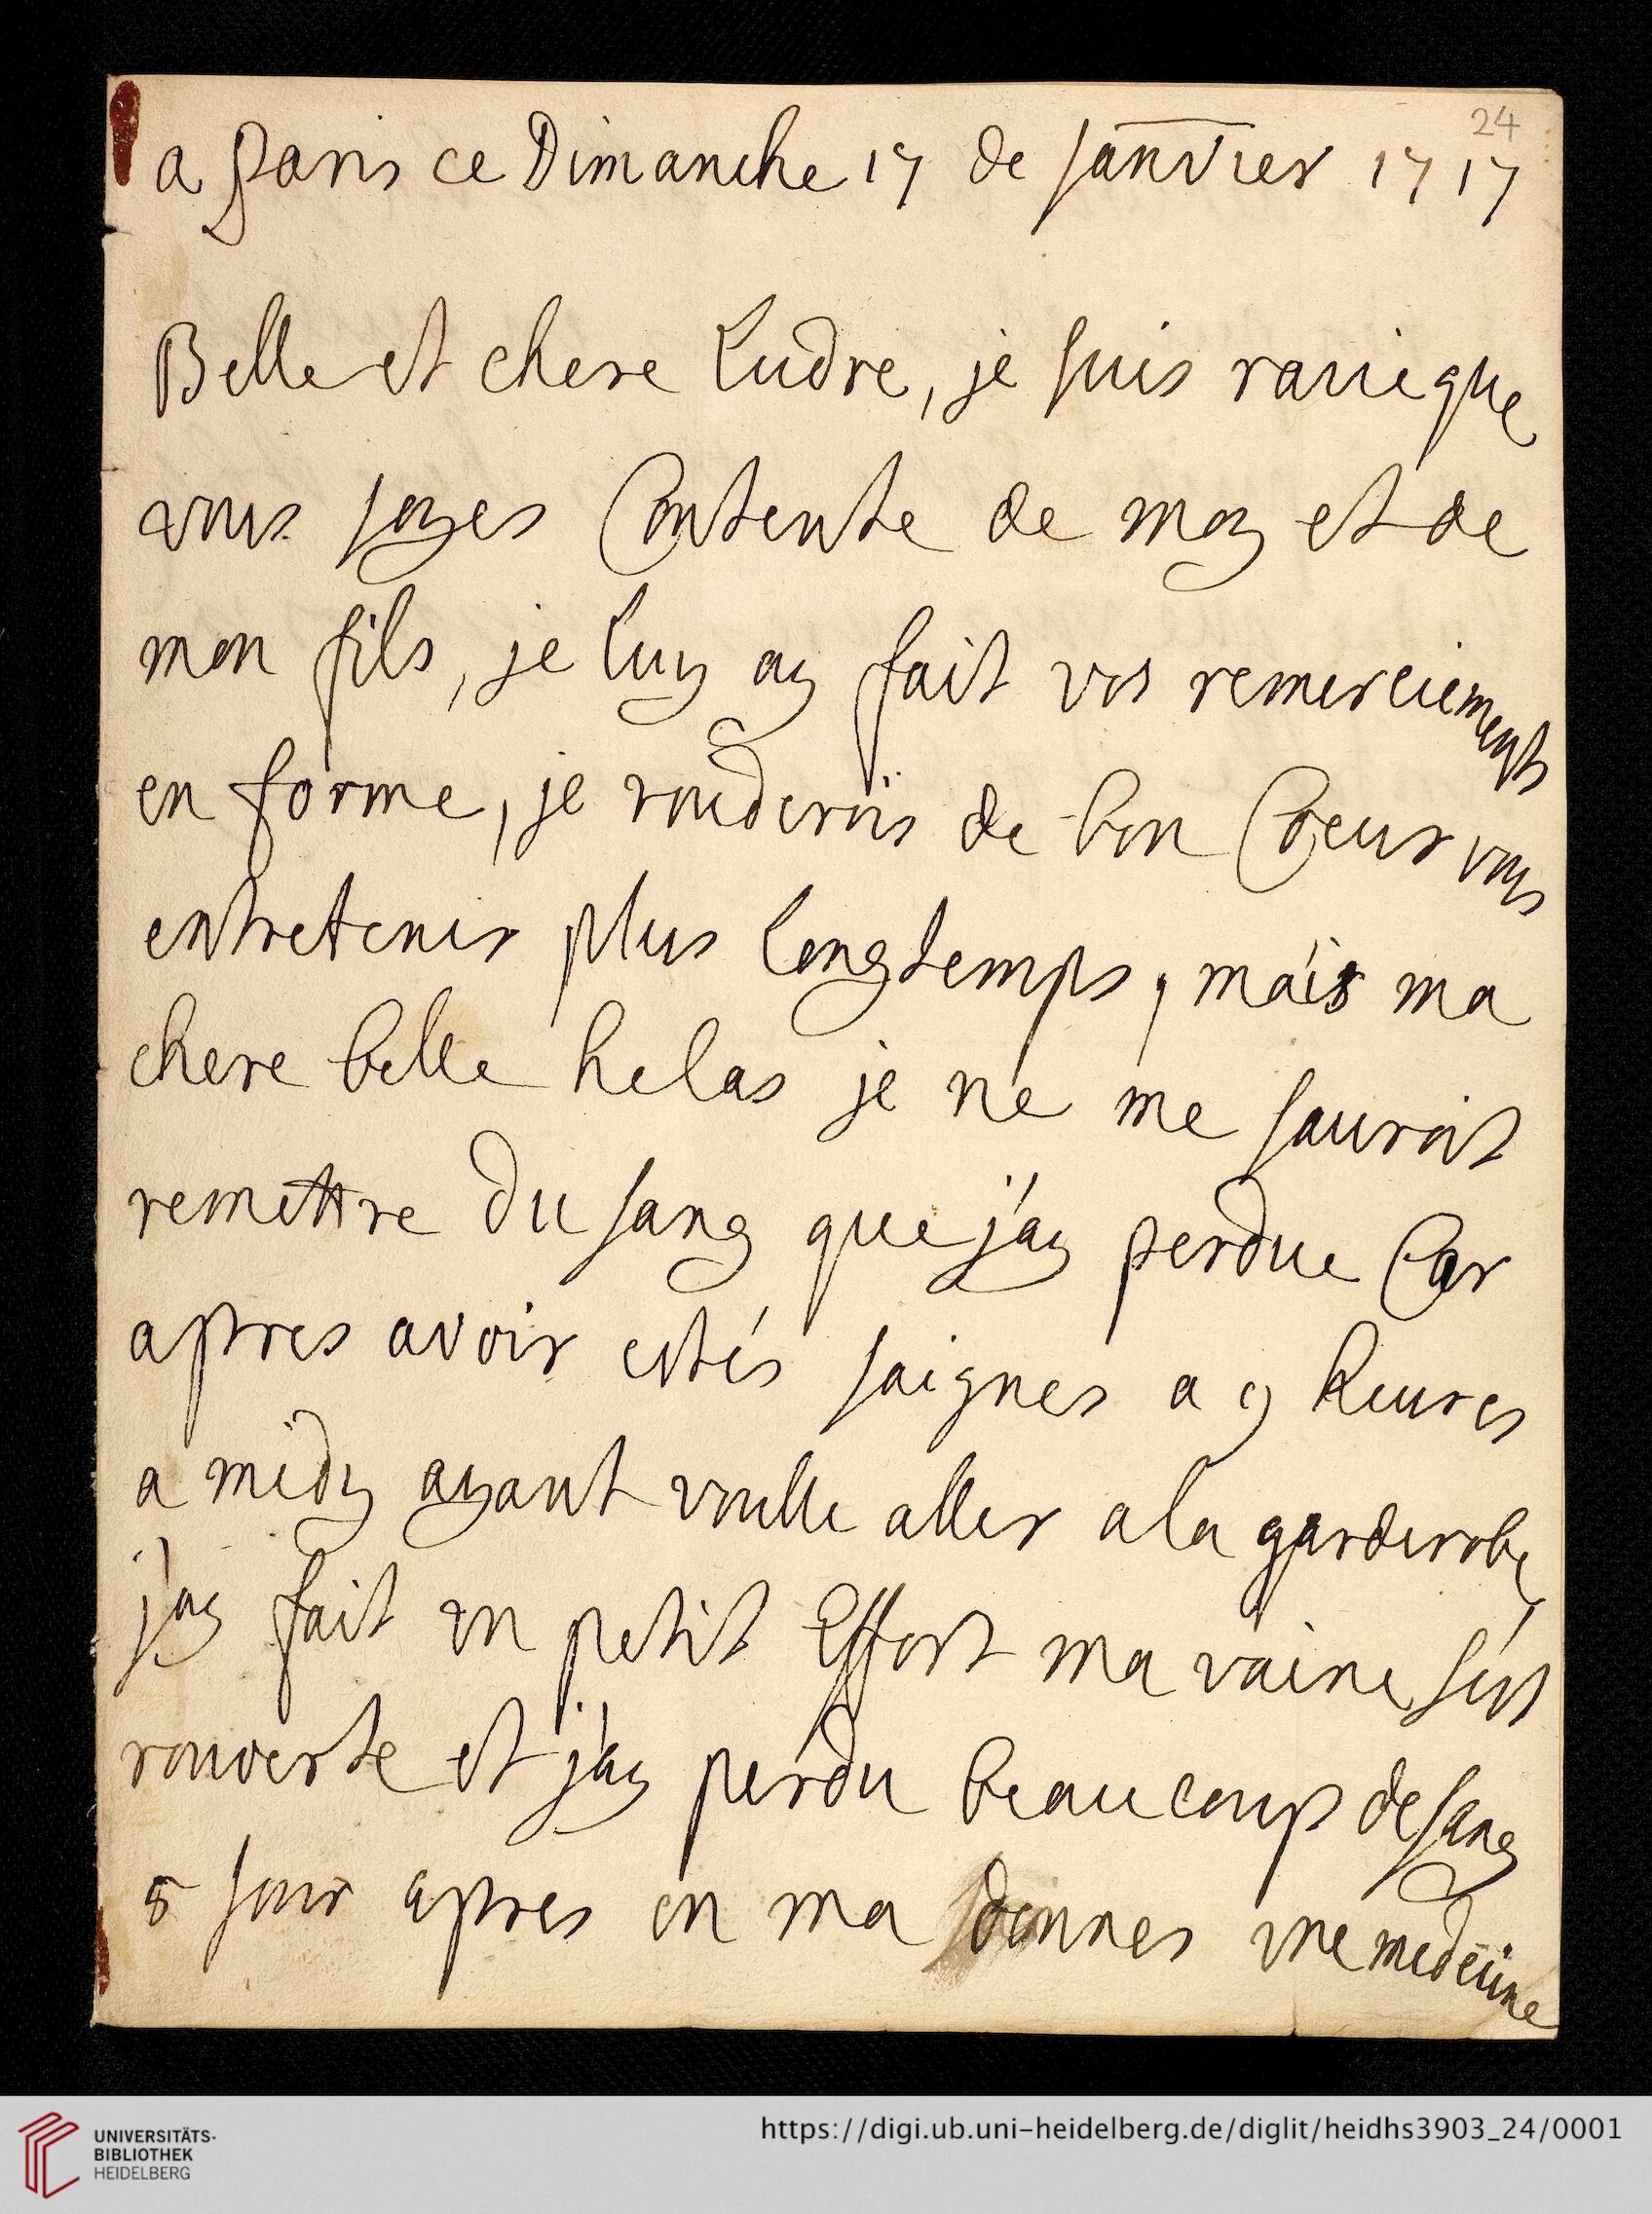 24
a Paris ce Dimanche 17 de janvier 1717
Belle et chere Ludre, je suis ravie que
vous soyes Contente de moy et de
mon fils, je luy ay fait vos remerciements
en forme, je vouderois de bon Coeur vous
entretenir plus longtemps, mais ma
chere belle helas je ne me saurois
remettre du sang que j'ay perdue Car
apres avoir estés saignes a 9 heures
a midy ayant voulle aller a la garderobe
j'ay fait un petit Effort ma vaine s'est
rouverte et j'ay perdu beaucoup de sang
5 jour apres on ma donnes une medecine
UNIVERSITÄTS-
BIBLIOTHEK
HEIDELBERG
https://digi.ub.uni-heidelberg.de/diglit/heidhs3903_24/0001